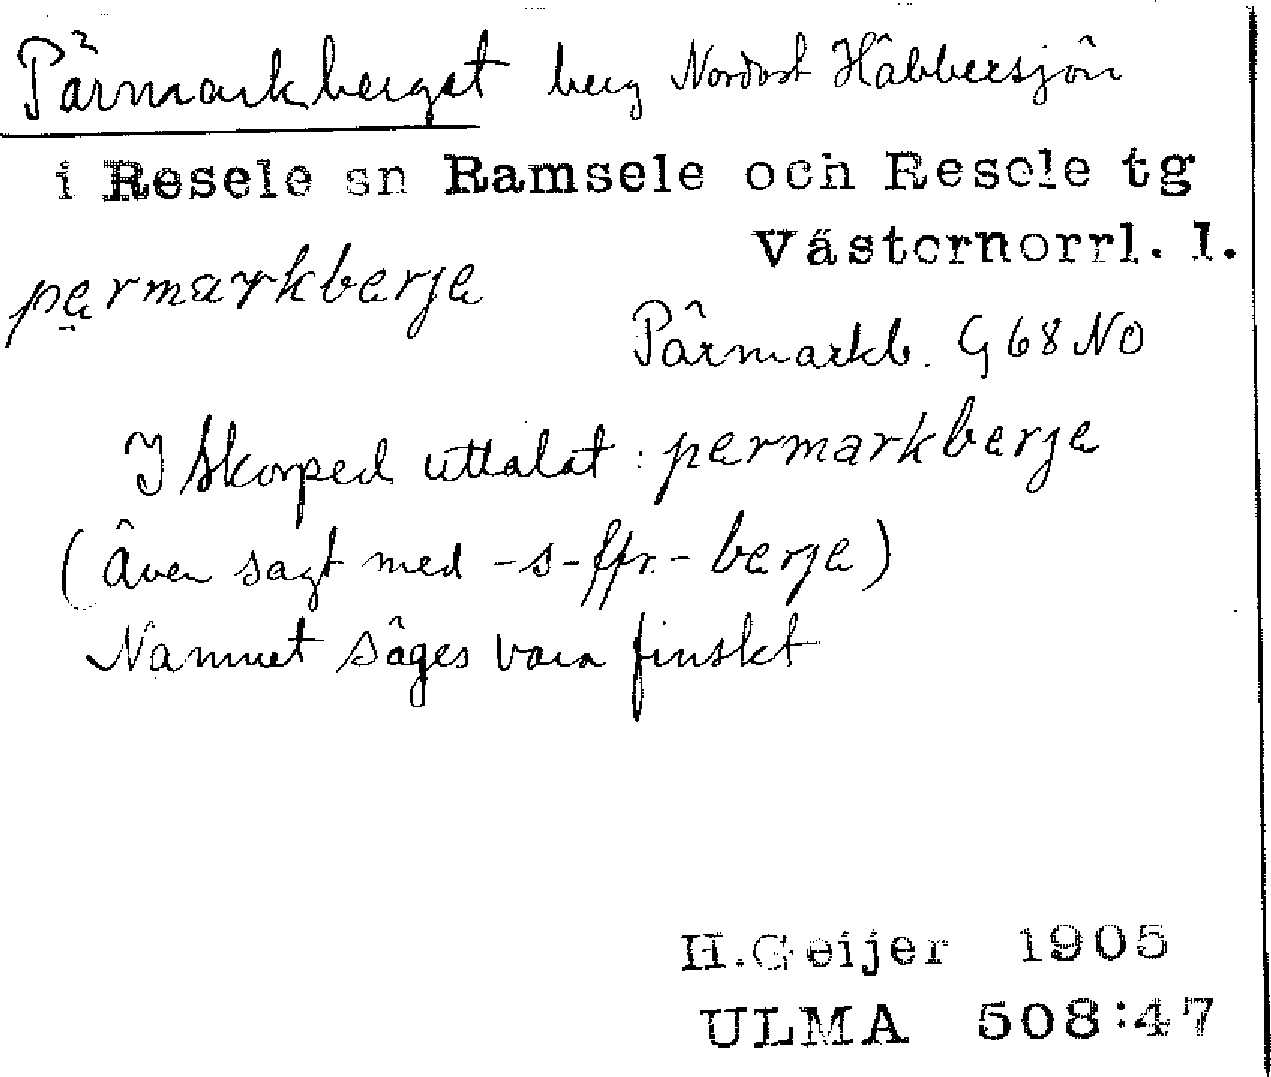 Pärmarkberget berg Nordost Häbbersjön
i Resele sn Ramsele och Resele tg
Västernorrl. l.
pęrmarkbærjə
Pärmarkb. G 68 NO
I Skorped uttalat: pærmarkbærjə
(Även sagt med -s- ffr. - bærjə)
Namnet säges vara finskt
H.Geijer 1905
ULMA 508:47